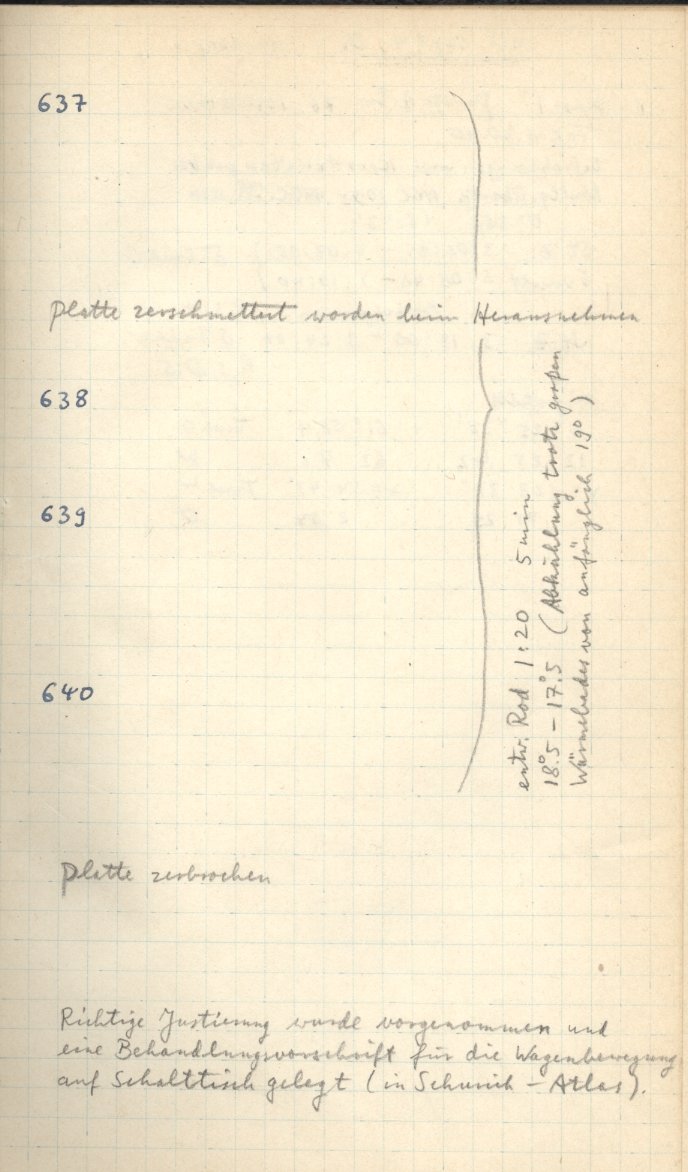 637
Platte zerschmettert worden beim Herausnehmen
638
639
640
entw. Rod 1:20 5 min
18°.5 – 17°.5 (Abkühlung trotz großen
Wärmebades von anfänglich 19°)
Platte zerbrochen
Richtige Justierung wurde vorgenommen und
eine Behandlungsvorschrift für die Wagenbewegung
auf Schalttisch gelegt (in – Atlas).